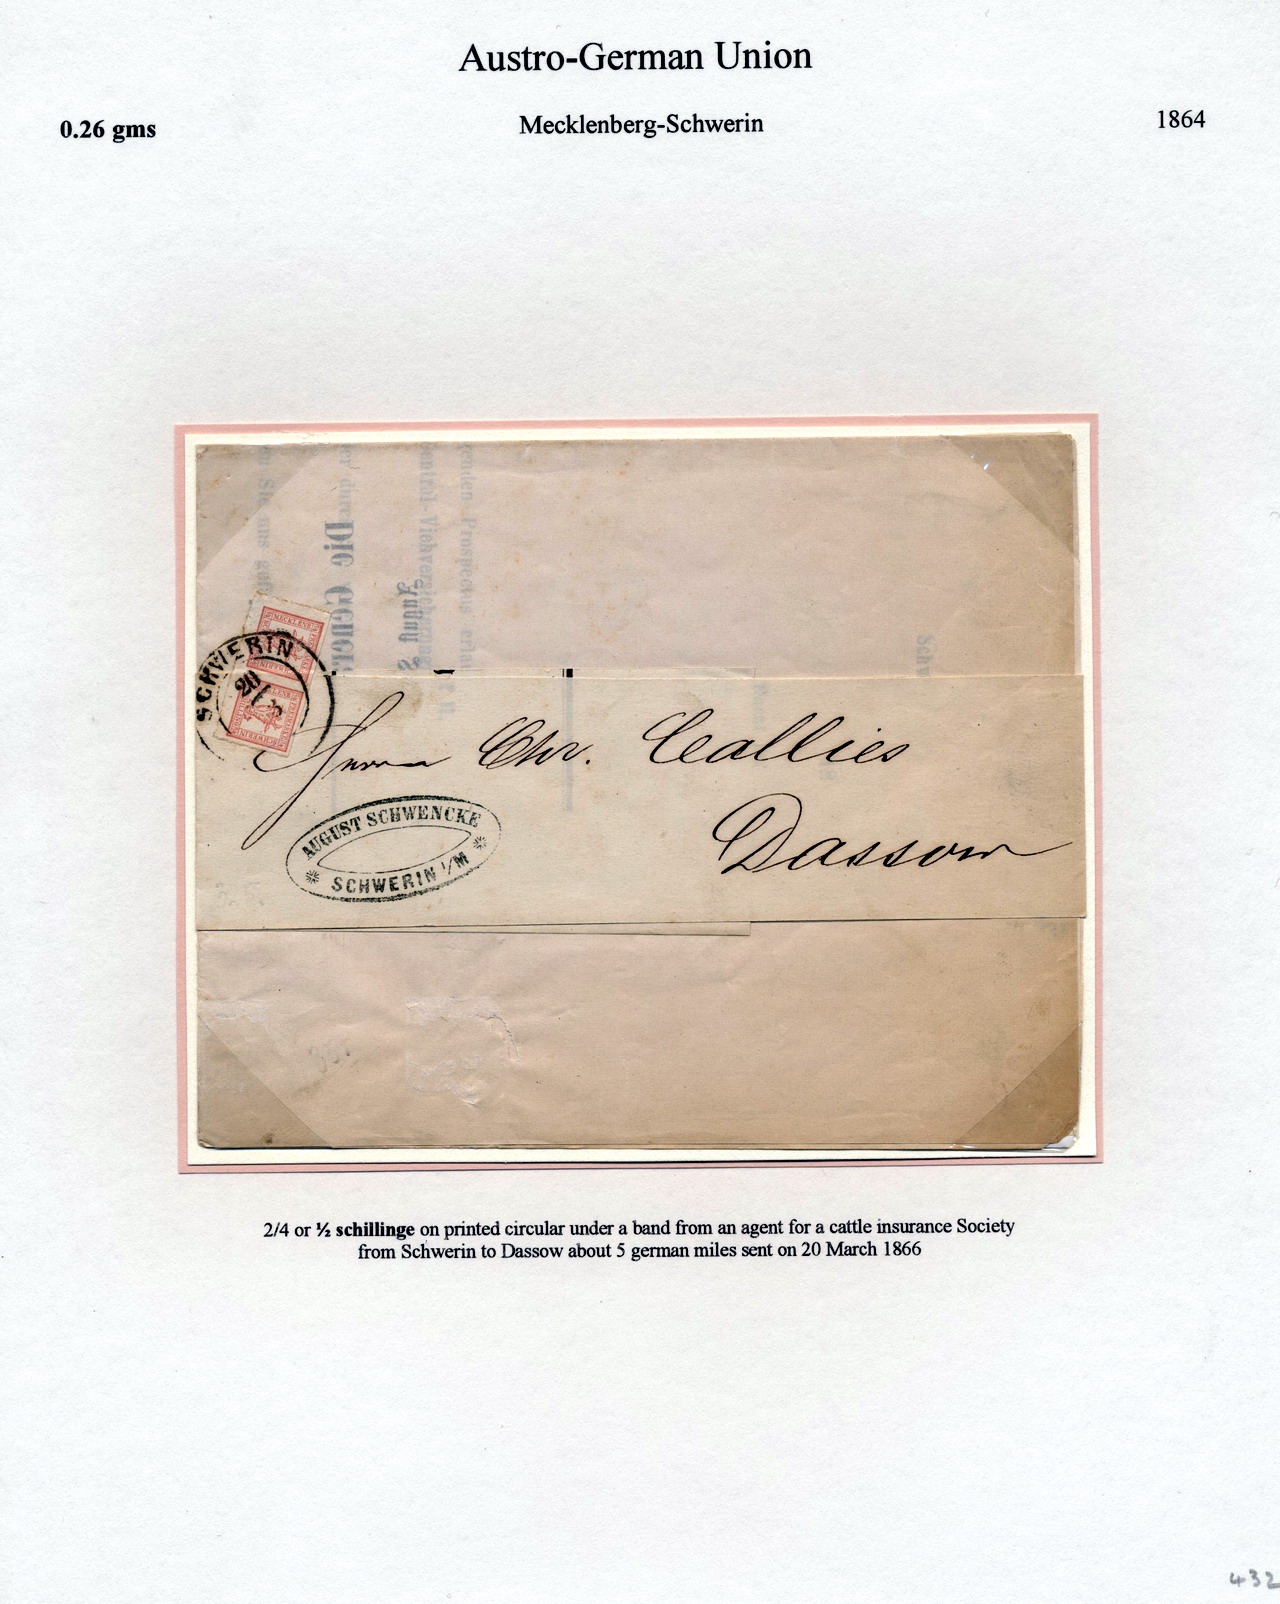 Austro-German Union
0.26 gms
Mecklenberg-Schwerin
1864
SCHWERIN
20/3
Herrn Chr. Callies
Dassow
AUGUST SCHWENCKE
SCHWERIN I/M
2/4 or ½ schillinge on printed circular under a band from an agent for a cattle insurance Society
from Schwerin to Dassow about 5 german miles sent on 20 March 1866
432